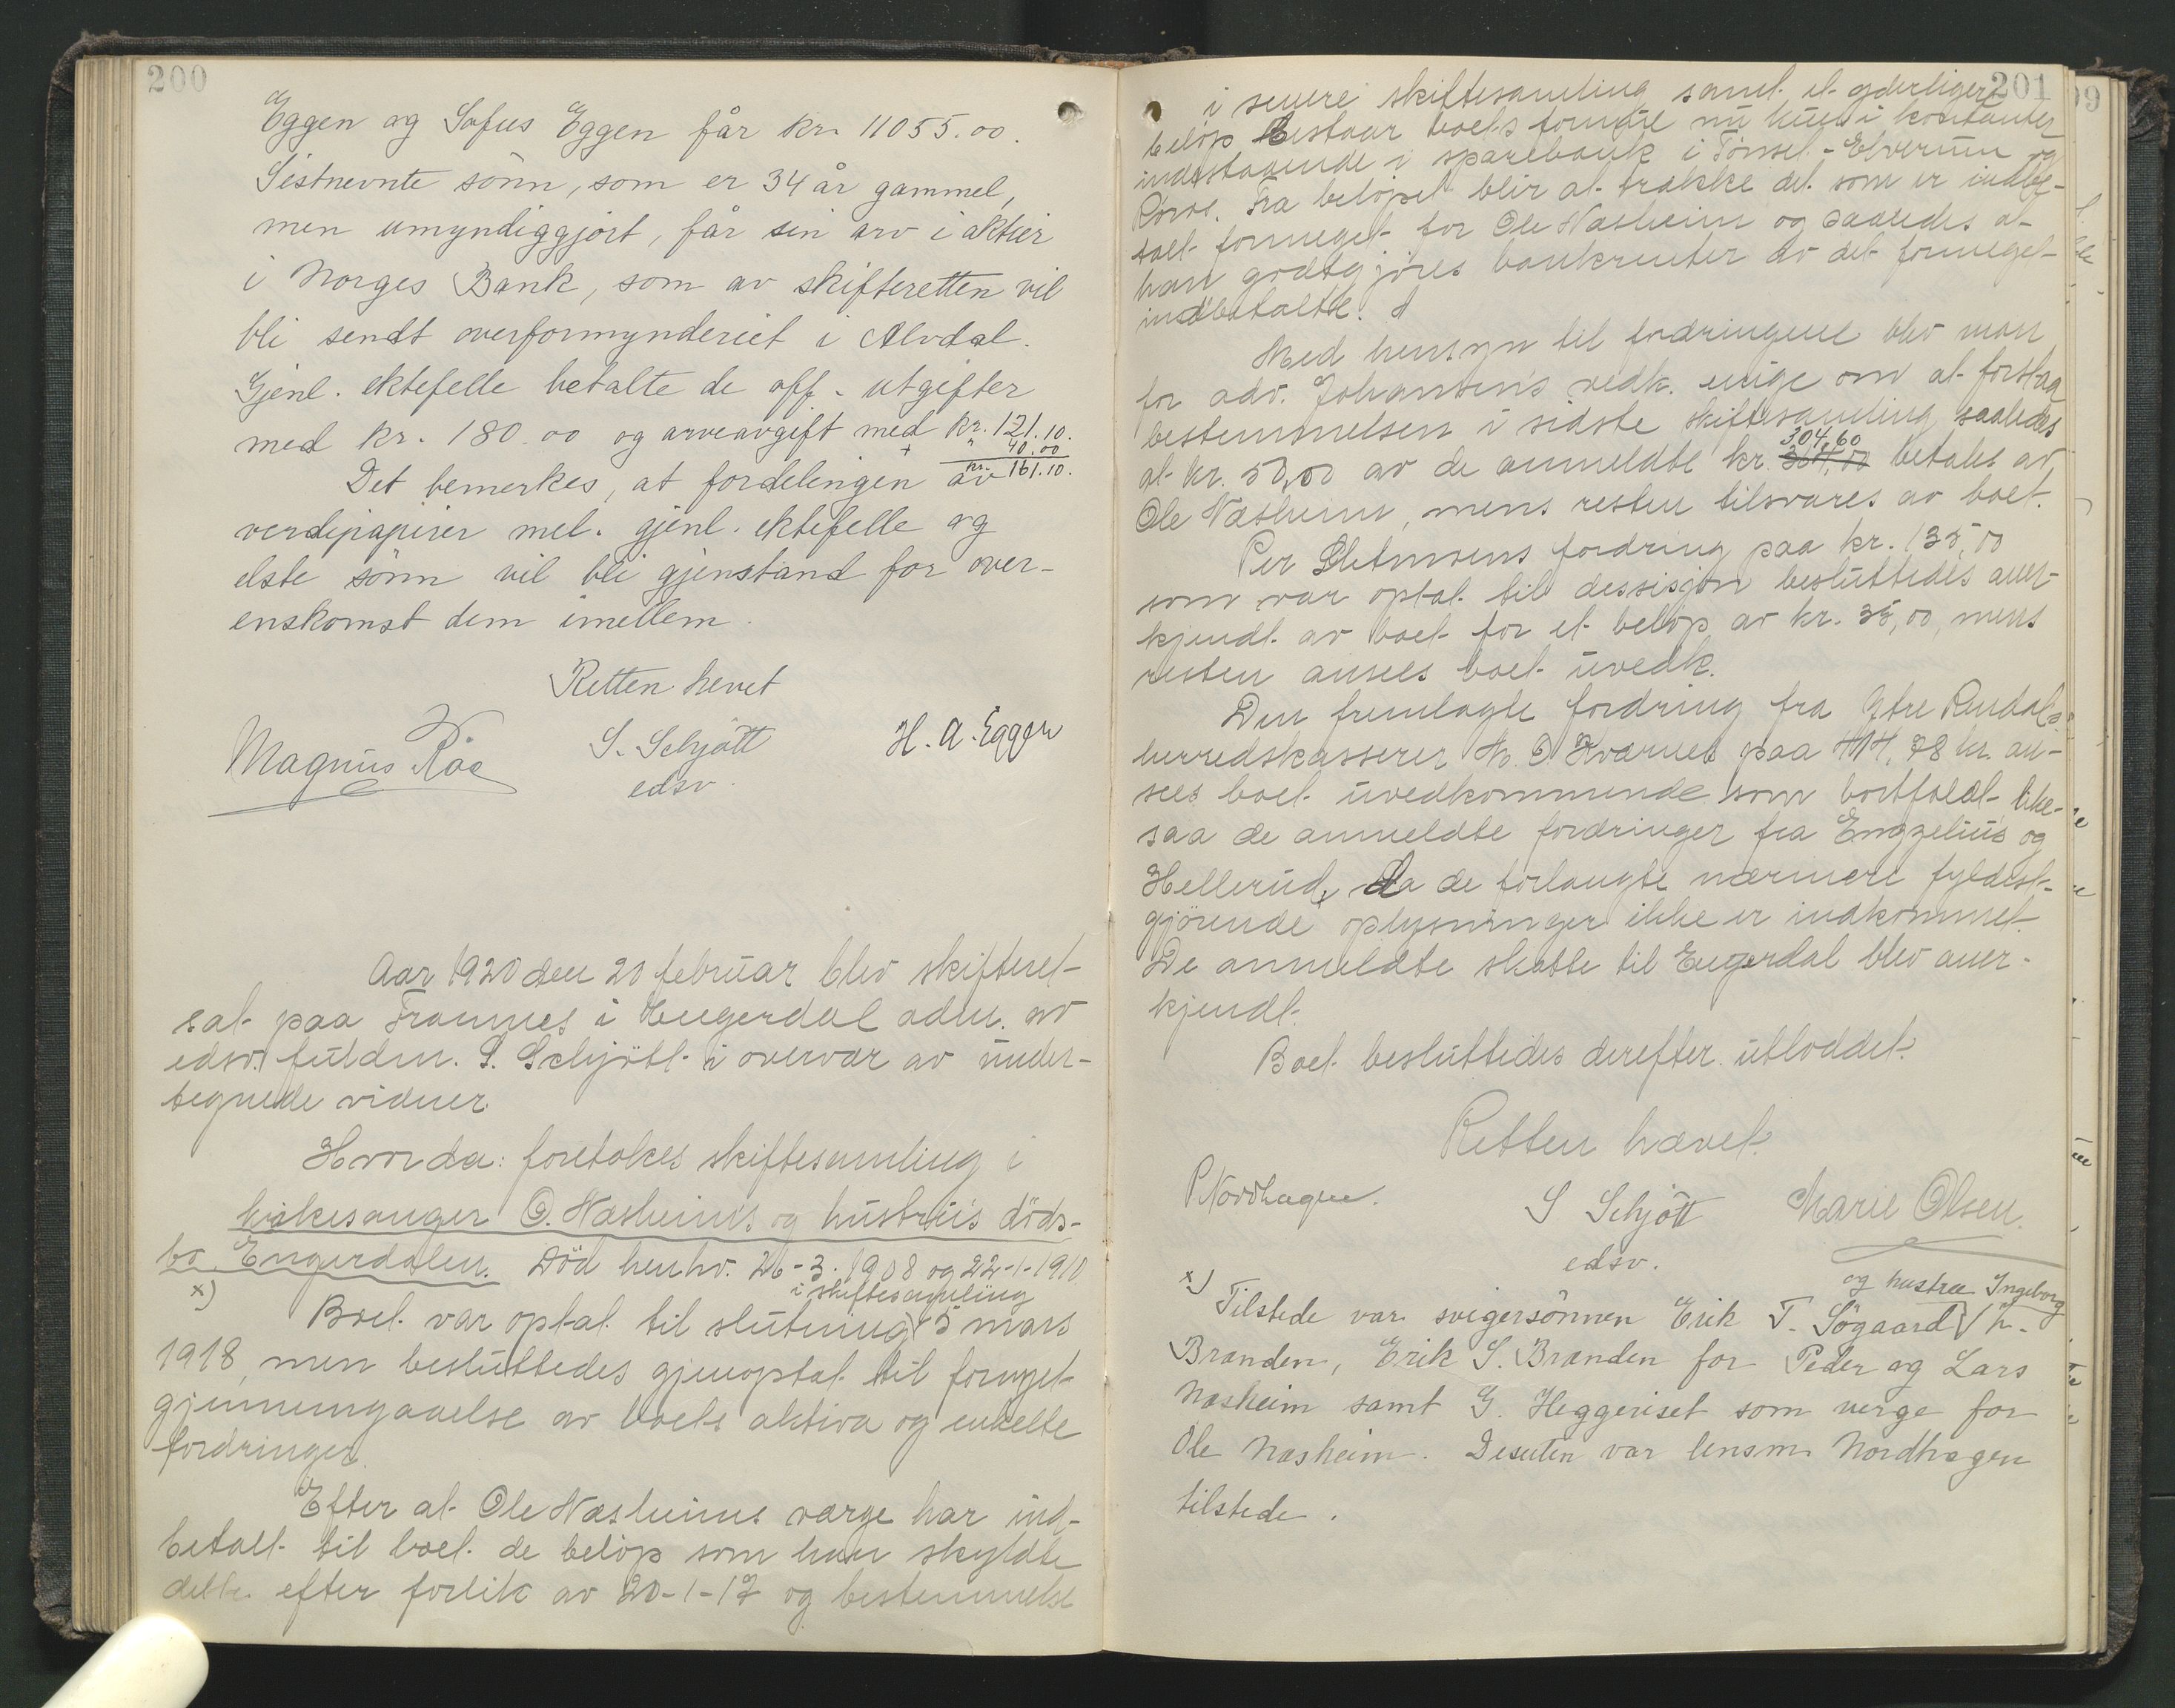 200
Eggen og Sofus Eggen får kr. 11055.00.
Sistnevnte sönn, som er 34 år gammel,
men umyndiggjort, får sin arv i aktier
i Norges Bank, som av skifteretten vil
bli sendt overformynderiet i Alvdal.
Gjenl. ektefelle betalte de off. utgifter
med kr. 180.00 og arveavgift med kr. 121.10.
+ " 40.00
kr. 161.10.
Det bemerkes, at fordelingen av
verdipapirer mel. gjenl. ektefelle og
elste sönn vil bli gjenstand for over-
enskomst dem imellem.
Retten hevet
Magnus Röe S. Schjött H. A. Eggen
edsv.
Aar 1920 den 20 februar blev skifteret
sat paa Framnes i Engerdal adm. av
edsv. fuldm. S. Schjött i overvær av under-
tegnede vidner.
Hvorda: foretokes skiftesamling i
kirkesanger O. Næsheims og hustrus döds-
bo Engerdalen. Död henhv. 26-3-1908 og 22-1-1910.
x) i skiftesamling
Boet var optat til slutning 5 mars
1918, men besluttedes gjenoptat til fornyet
gjennemgaaelse av boets aktiva og enkelte
fordringer.
Efter at Ole Næsheims værge har ind-
betalt til boet de belöp som han skyldte
dette efter forlik av 20-1-17 og bestemmelse
201
i senere skiftesamling samt et yderligere
belöp bestaar boets formue nu kun i kontanter
indestaaende i sparebank i Tönset - Elverum og
Röros. Fra belöpet blir at trække det som er indbe-
talt formeget for Ole Næsheim og saaledes at
han godtgjöres bankrenter av det formeget
indbetalte.
Med hensyn til fordringene blev man
for adv. Johansens vedk. enige om at forstaa
bestemmelsen i sidste skiftesamling saaledes
304,60
at kr. 50,00 av de anmeldte kr. 304,00 betales av
Ole Næsheim, mens resten tilsvares av boet.
Per Sletmoens fordring paa kr. 135,00
som var optat til dessisjon besluttedes aner-
kjendt av boet for et belöp av kr. 35,00, mens
resten ansees boet uvedk.
Den fremlagte fordring fra Ytre Rendals
herredskasserer N. O. Kværnes paa 414,78 kr. an-
sees boet uvedkommende som bortfaldt, like-
saa de anmeldte fordringer fra Engzelius og
Hellerud, da de forlangte nærmere fyldest-
gjörende oplysninger ikke er indkommet.
De anmeldte skatte til Engerdal blev aner-
kjendt.
Boet besluttedes derefter utloddet.
Retten hævet.
P. Nordhagen. S Schjött Marie Olsen.
edsv.
og hustru Ingeborg
x) Tilstede var svigersönnen Erik T. Sögaard
Brænden, Erik S. Brænden for Peder og Lars
Næsheim samt G. Heggeriset som verge for
Ole Næsheim. Desuten var lensm. Nordhagen
tilstede.